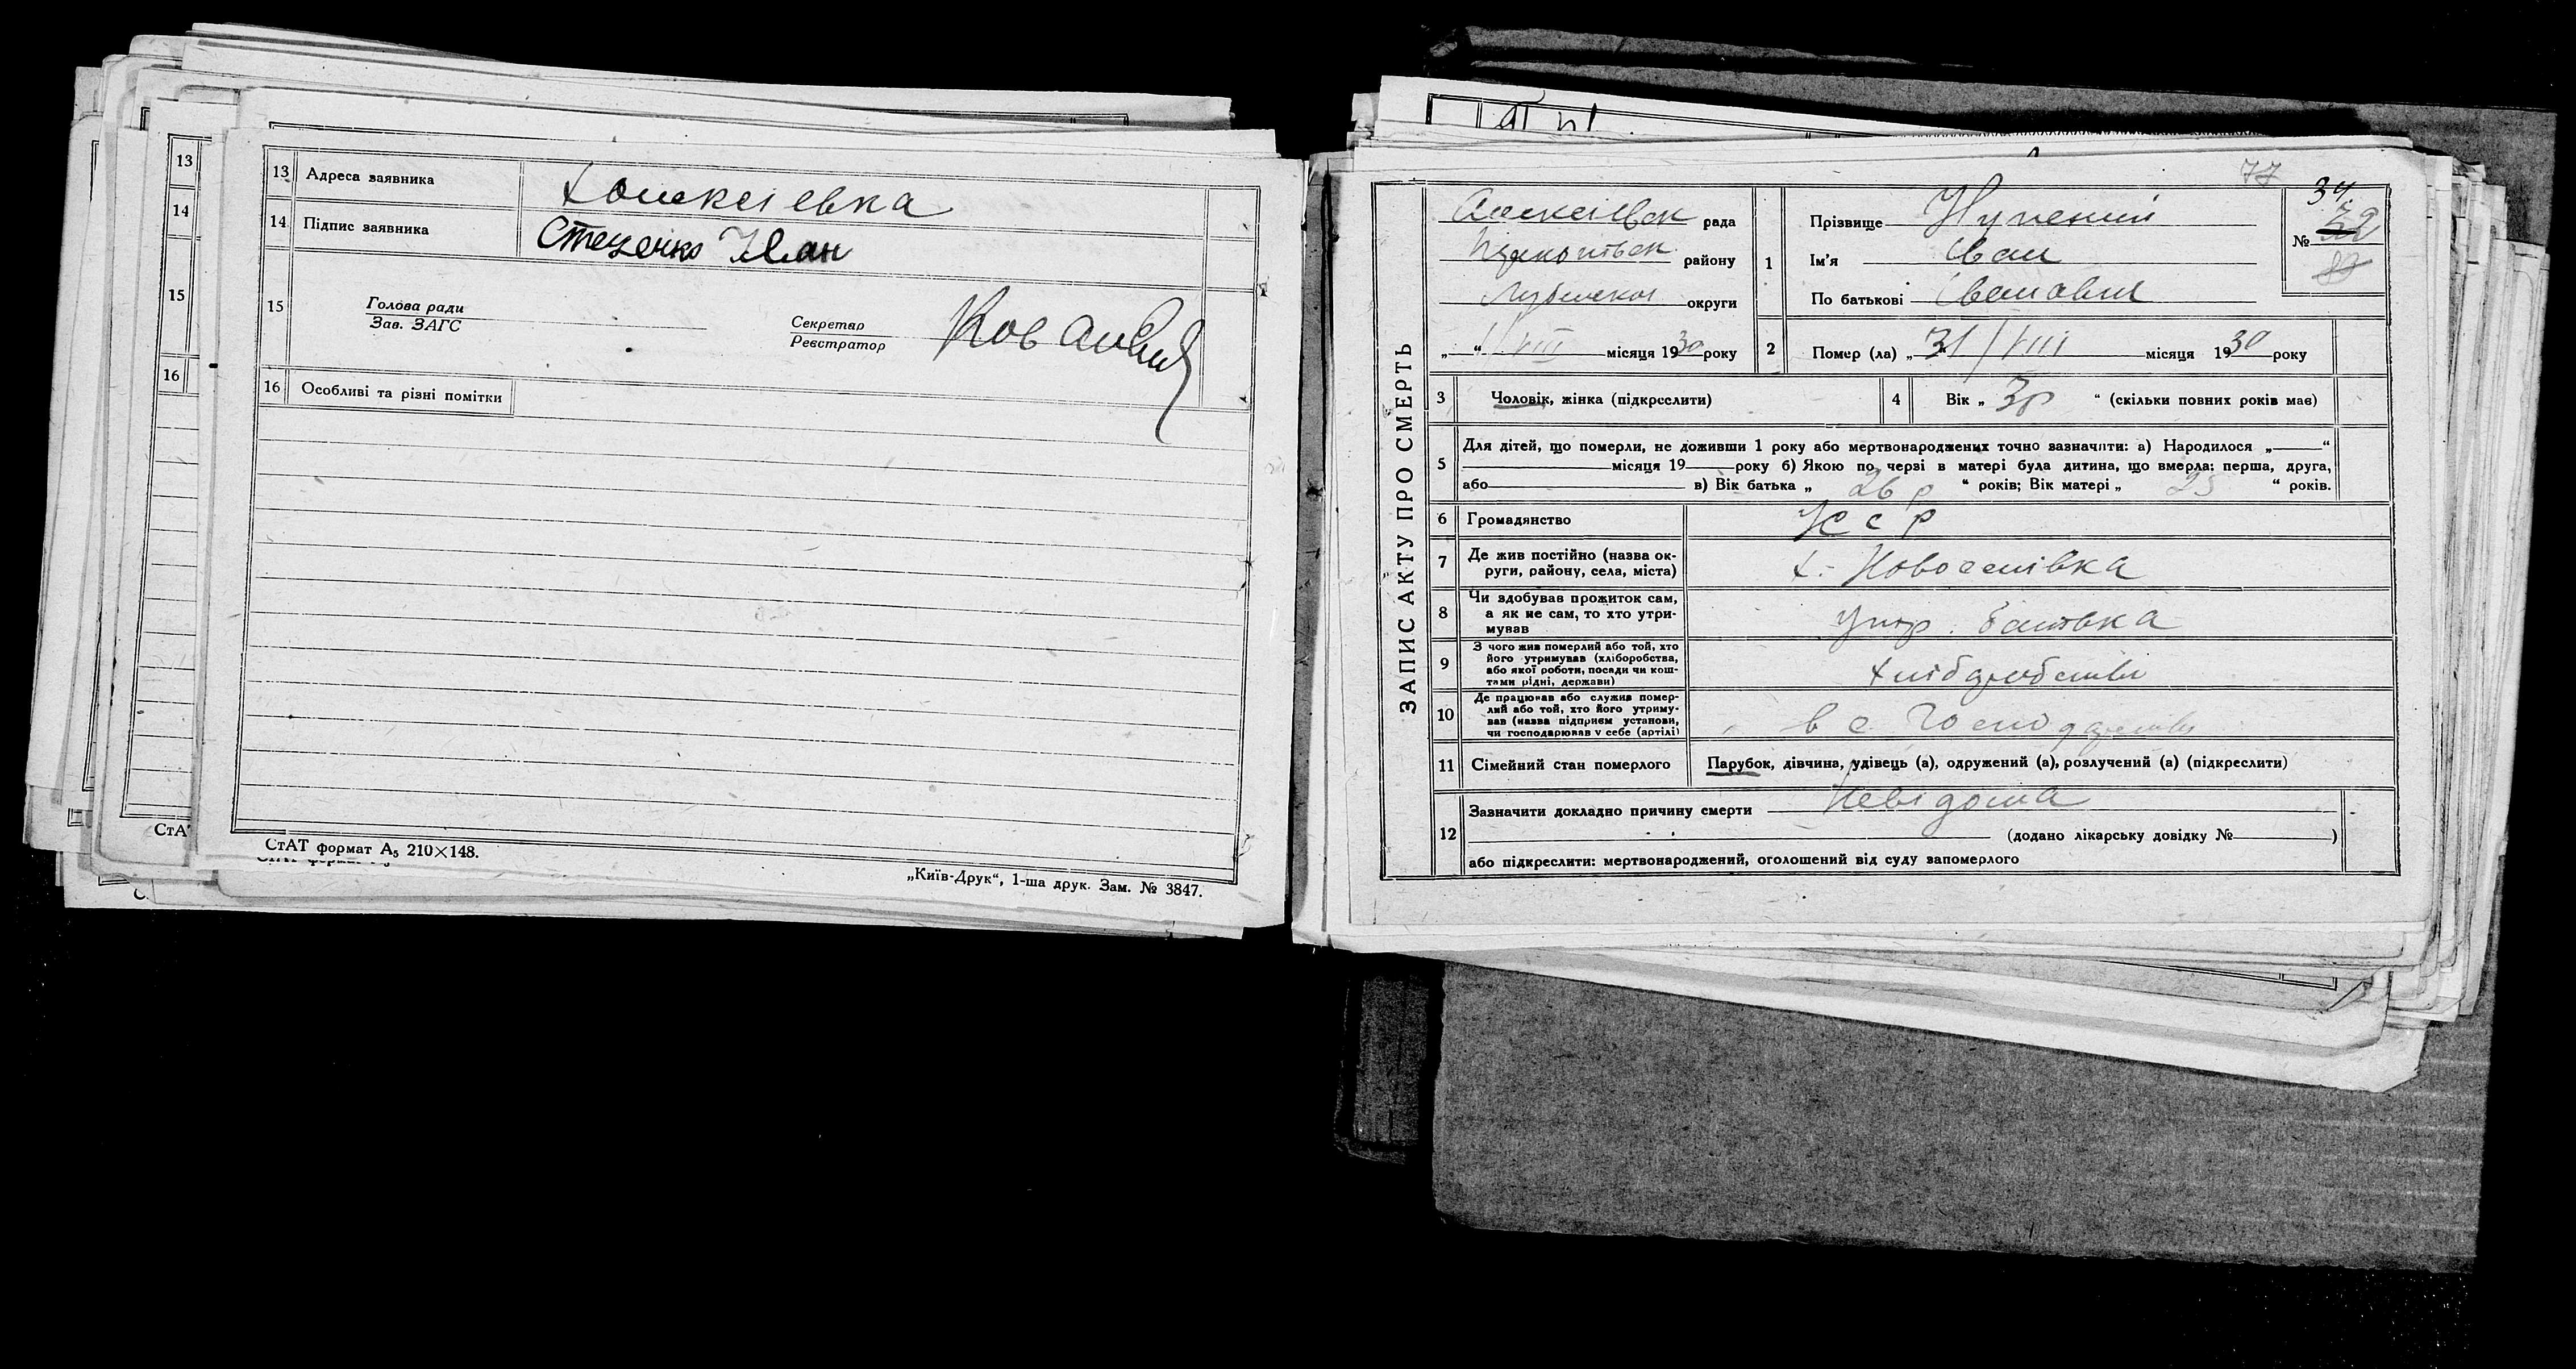 13
14
15
16
СтАТ
13 Адреса заявника
14 Підпис заявника Стеценко Іван
15 Голова ради
Зав. ЗАГС
Секретар
Реєстратор
16 Особливі та різні помітки
СтАТ формат А₅ 210×148.
„Київ-Друк“, 1-ша друк. Зам. № 3847.
77
ЗАПИС АКТУ ПРО СМЕРТЬ
рада
району
округи
„ “ VIII місяця 1930 року
1 Прізвище
Ім'я Іван
По батькові Іванович
34
№
2 Помер (ла) „31/VIII місяця 1930 року
3 Чоловік, жінка (підкреслити)
4 Вік „ 3р “ (скільки повних років мав)
5 Для дітей, що померли, не доживши 1 року або мертвонароджених точно зазначити: а) Народилося „ “
місяця 19 року б) Якою по черзі в матері була дитина, що вмерла: перша, друга,
або в) Вік батька „ 26 р “ років; Вік матері „ 25 “ років.
6 Громадянство УССР
7 Де жив постійно (назва округи, району, села, міста) х. Новоселівка
8 Чи здобував прожиток сам,
а як не сам, то хто утримував
утр. батька
9 З чого жив померлий або той, хто
його утримував (хліборобства,
або якої роботи, посади чи коштами рідні, держави)
хліборобства
10 Де працював або служив померлий або той, хто його утримував (назва підприєм установи,
чи господарював у себе (артілі)
в с. господарстві
11 Сімейний стан померлого Парубок, дівчина, удівець (а), одружений (а), розлучений (а) (підкреслити)
12 Зазначити докладно причину смерти Невідома
(додано лікарську довідку № )
або підкреслити: мертвонароджений, оголошений від суду запомерлого